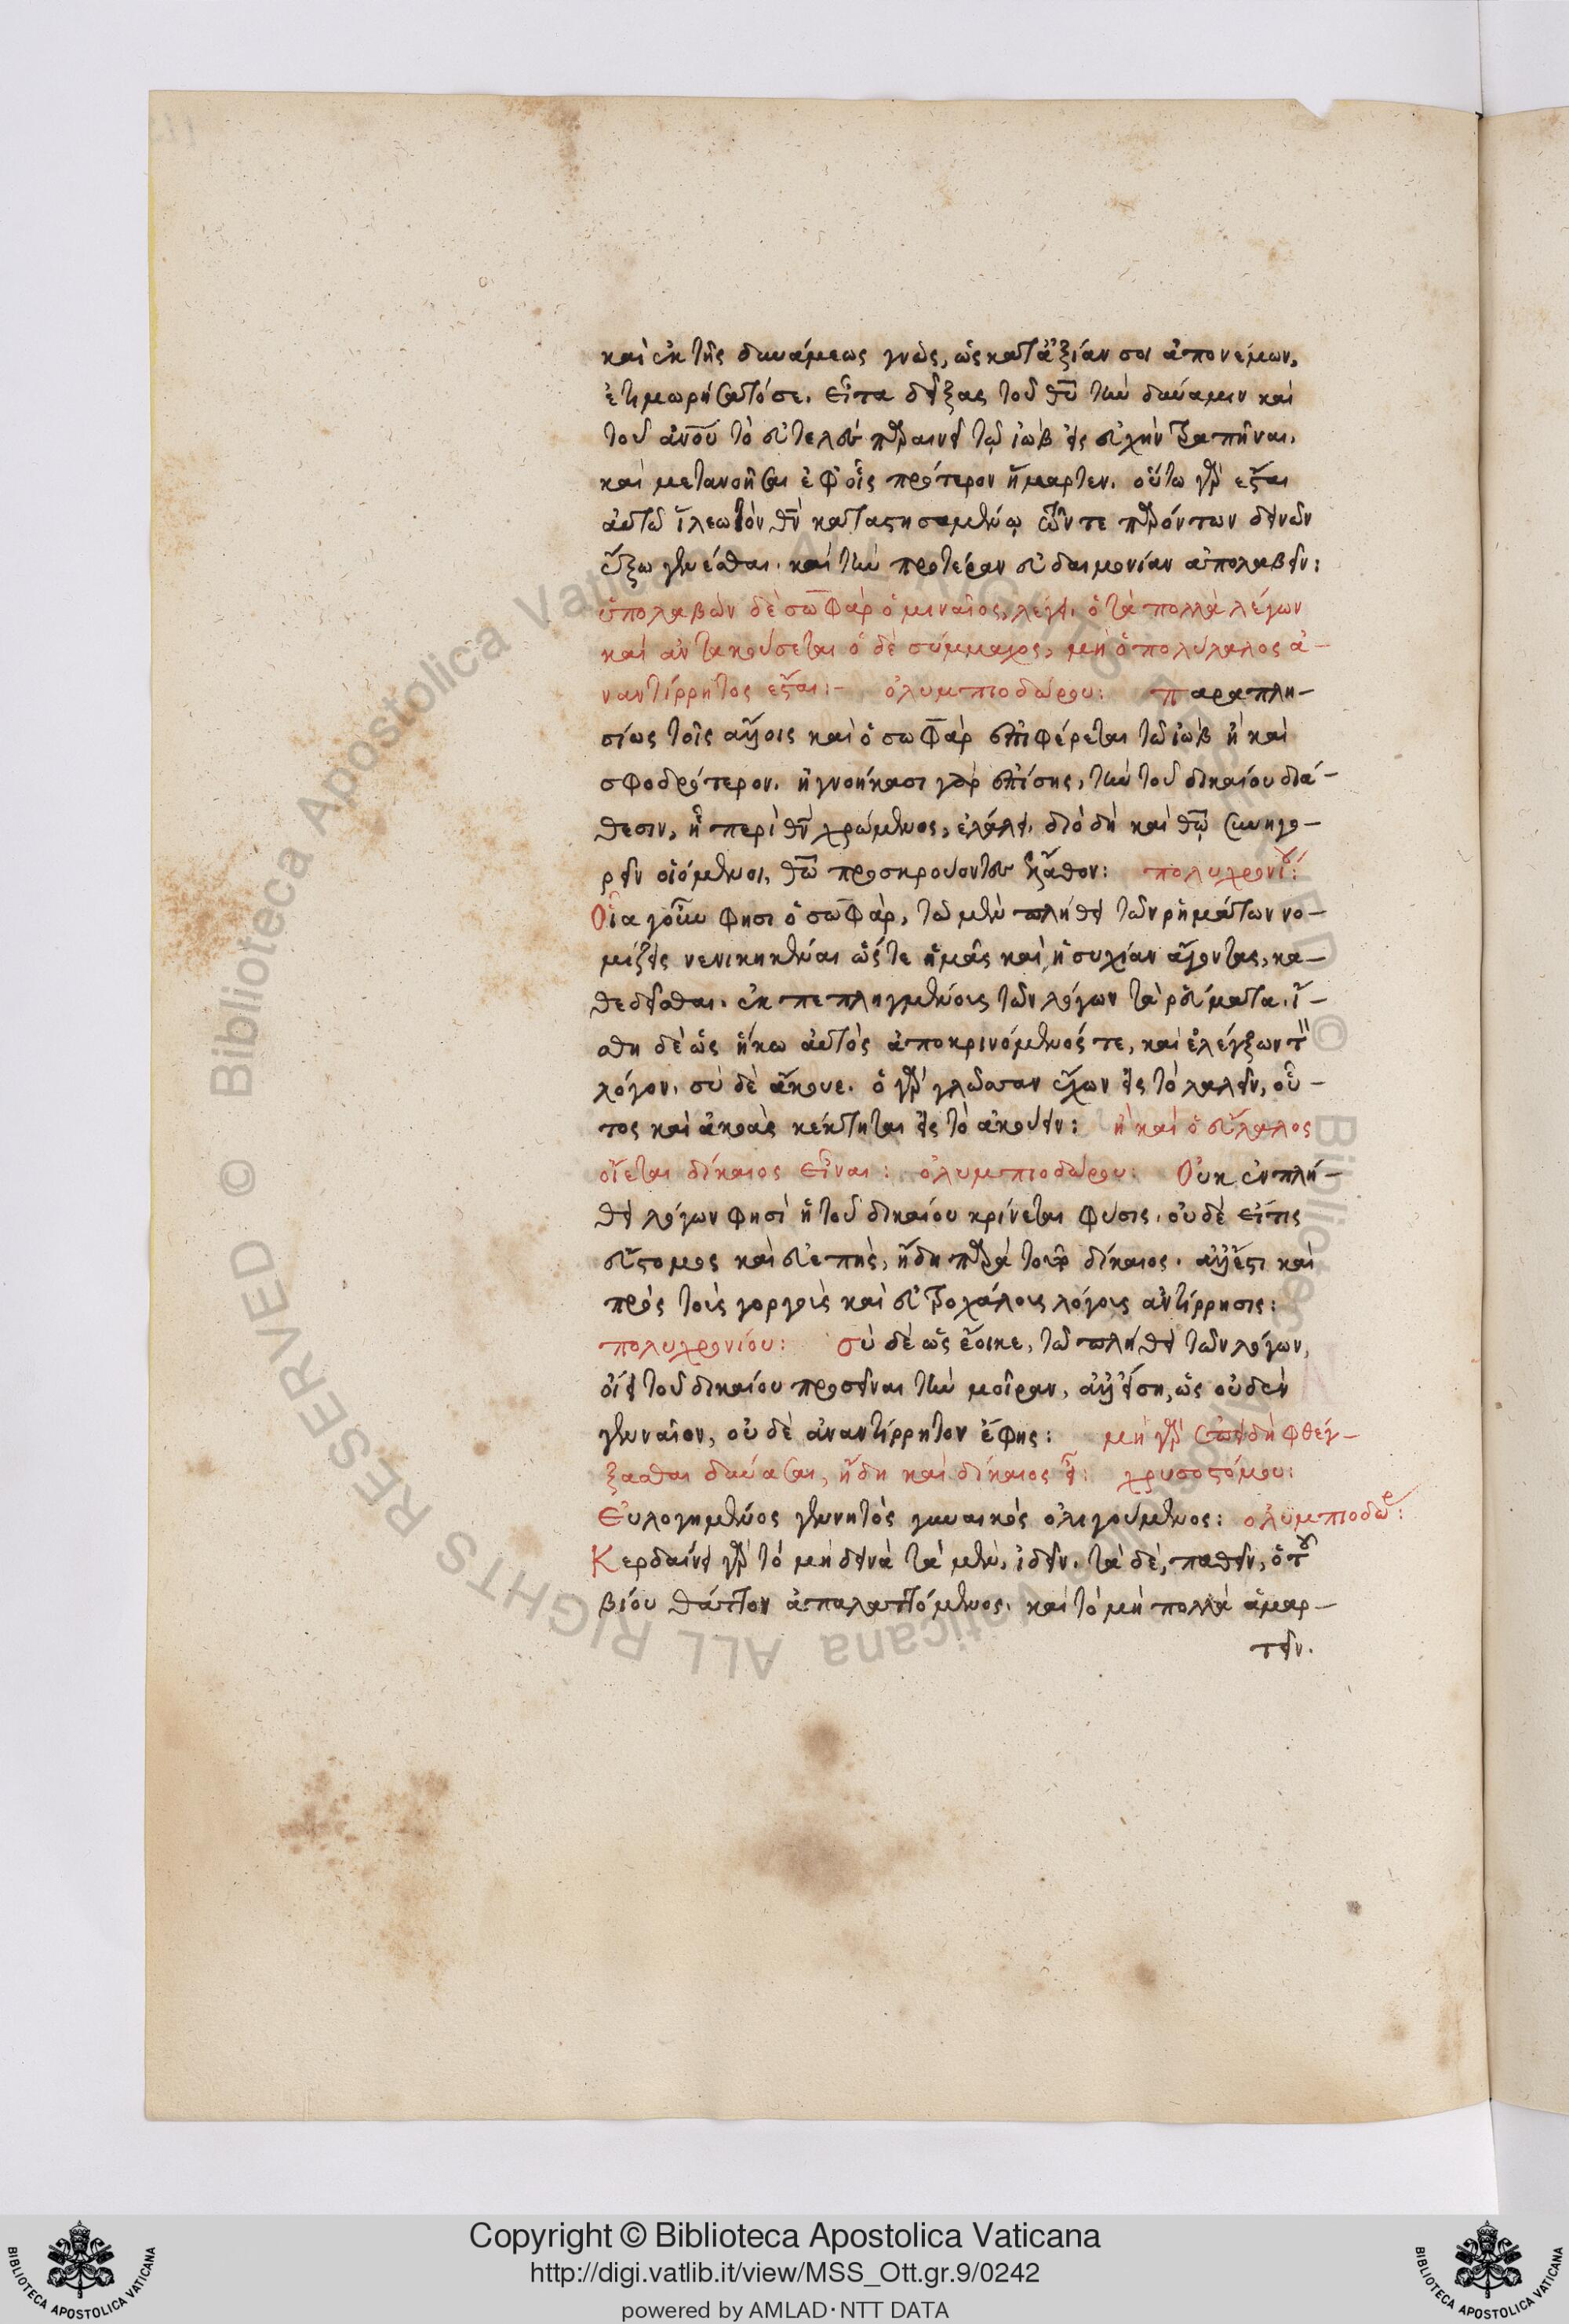 καὶ ἐκ τῆς δυνάμεως γνῶς, ὡς κατ' ἀξίαν σοι ἀπονέμων,
ἐτιμωρήσατό σε. εἶτα δείξας τοῦ θυ τὴν δύναμιν καὶ
τοῦ ανου τὸ εὐτελὲς παραινεῖ τῷ ἰὼβ εἰς εὐχὴν τραπῆναι.
καὶ μετανοῆσαι ἐφ' οἷς πρότερον ἥμαρτεν. οὕτω γὰρ ἔσται
αὐτῷ ἵλεω τὸν θν καταστησαμένῳ τῶν τε παρόντων δεινῶν
ἔξω γενέσθαι. καὶ τὴν προτέραν εὐδαιμονίαν ἀπολαβεῖν:
ὑπολαβὼν δὲ σωφὰρ ὁ μιναῖος, λέγει. ὁ τὰ πολλὰ λέγων
καὶ ἀντακούσεται ὁ δὲ σύμμαχος, μὴ ὁ πολύλαλος ἀ-
ναντίρρητος ἔσται:- ὀλυμπιοδώρου: παραπλη-
σίως τοῖς ἄλλοις καὶ ὁ σωφὰρ ἐπιφέρεται τῷ ἰὼβ ἢ καὶ
σφοδρότερον. ἠγνοήκασι γὰρ ἐπίσης, τὴν τοῦ δικαίου διά-
θεσιν, ἣ περὶ θν χρώμενος, ἐλάλει. διὸ δὴ καὶ θω συνηγο-
ρεῖν οἰόμενοι, θω προσκρούοντες ἔλαθον: πολυχρονίου:
Οἷα γοῦν φησι ὁ σωφὰρ, τῷ μὲν πλήθει τῶν ρημάτων νο-
μίζεις νενικηκέναι ὥστε ἡμᾶς καὶ ἡσυχίαν ἄγοντας, κα-
θεδεῖσθαι. ἐκπεπληγμένους τῶν λόγων τὰ ρεύματα. ἴ-
σθι δὲ ὡς ἥκω αὐτὸς ἀποκρινόμενός τε, καὶ ἐλέγξων τὸν
λόγον. σὺ δὲ ἄκουε. ὁ γὰρ γλῶσσαν ἔχων εἰς τὸ λαλεῖν, οὗ-
τος καὶ ἀκοὰς κέκτηται εἰς τὸ ἀκούειν: ἢ καὶ ὁ εὔλαλος
οἴεται δίκαιος εἶναι: ὀλυμπιοδώρου: Οὐκ ἐν πλή-
θει λόγων φησὶ ἡ τοῦ δικαίου κρίνεται φύσις. οὐδὲ εἴ τις
εὔστομος καὶ εὐεπὴς, ἤδη παρὰ τοῦτο δίκαιος. ἀλλ' ἔστι καὶ
πρὸς τοὺς γοργοὺς καὶ εὐτροχάλους λόγους ἀντίρρησις:
πολυχρονίου: σὺ δὲ ὡς ἔοικε, τῷ πλήθει τῶν λόγων,
οἴει τοῦ δικαίου προσεῖναι τὴν μοῖραν, ἀλλ' εἴση, ὡς οὐδὲν
γενναῖον, οὐδὲ ἀναντίρρητον ἔφης: μὴ γὰρ ἐπειδὴ φθέγ-
ξασθαι δύναται, ἤδη καὶ δίκαιος εἶ: χρυσοστόμου:
Εὐλογημένος γεννητὸς γυναικὸς ὀλιγούμενος: ὀλυμπιοδώρ:
Κερδαίνει γὰρ τὸ μὴ δεινὰ τὰ μὲν, ἰδεῖν. τὰ δὲ, παθεῖν, ὁ τοῦ
βίου θάττον ἀπαλαττόμενος. καὶ τὸ μὴ πολλὰ ἁμαρ-
τεῖν.
Copyright © Biblioteca Apostolica Vaticana
http://digi.vatlib.it/view/MSS_Ott.gr.9/0242
powered by AMLAD·NTT DATA